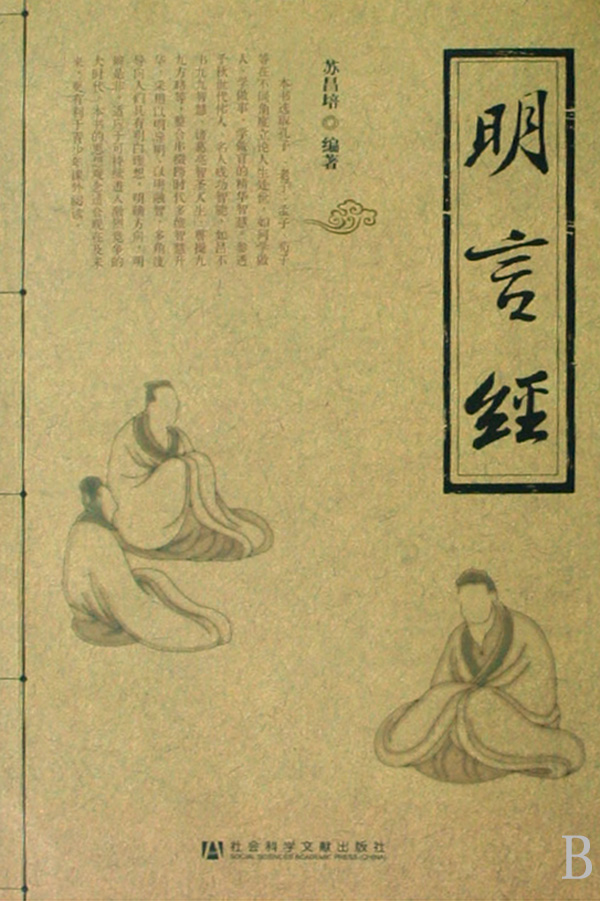 明言經
苏昌培◎编著
本书选取孔子、老子、孟子、荀子
等在不同角度立论人生处世、如何学做
人、学做事、学做官的精华智慧。参透
千秋世代伟人、名人成功智能，如吕不
韦九九智慧、诸葛亮智圣人生、曹操九
九方略等，整合并 跨时代多维智慧升
华， 以明导明、以明融智，多角度
导向人们具有明白理想、明晰方向、明
辨是非，适应于可持续进入激烈竞争的
大时代。本书的思想观念适合现在及未
来，更有利于青少年课外阅读。
社会科学文献出版社
SOCIAL SCIENCES ACADEMIC PRESS (CHINA)
B